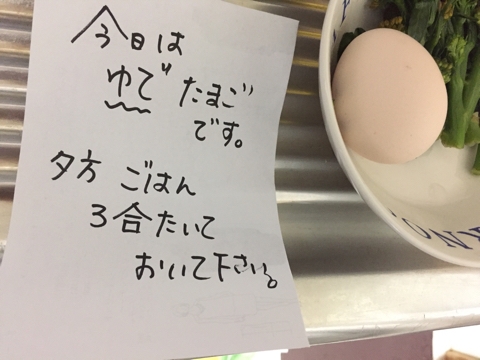 今日は
ゆでたまご
です。
夕方 ごはん
3合たいて
おいて下さい。